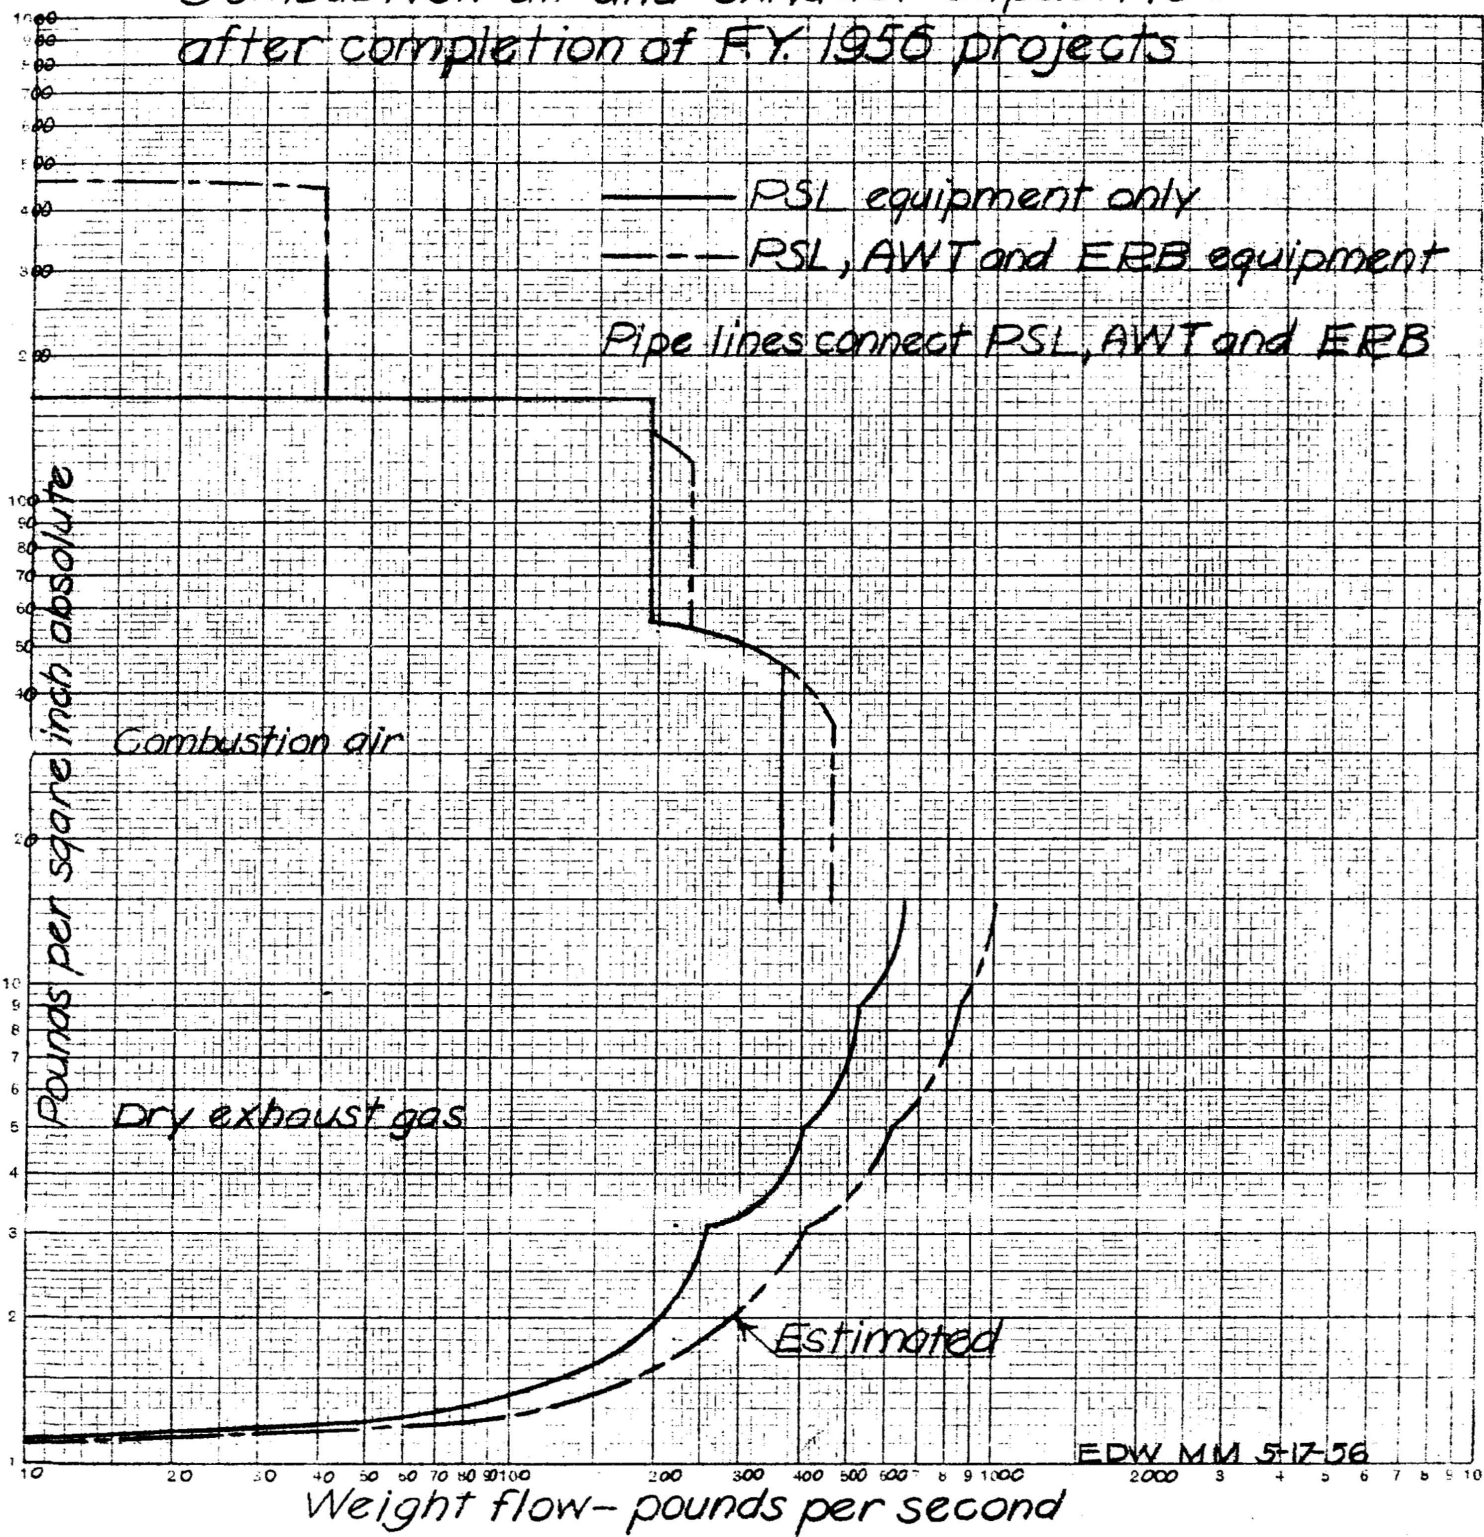 after completion of F.Y. 1956 projects
PSL equipment only
PSL, AWT and ERB equipment
Pipe lines connect PSL, AWT and ERB
Pounds per sqare inch absolute
Combustion air
Dry exhaust gas
Estimated
EDW MM 5-17-56
1000
900
800
700
600
500
400
300
200
100
90
80
70
60
50
40
30
20
10
9
8
7
6
5
4
3
2
1
10 20 30 40 50 60 70 80 90 100 200 300 400 500 600 7 8 9 1000 2000 3 4 5 6 7 8 9 10
Weight flow - pounds per second